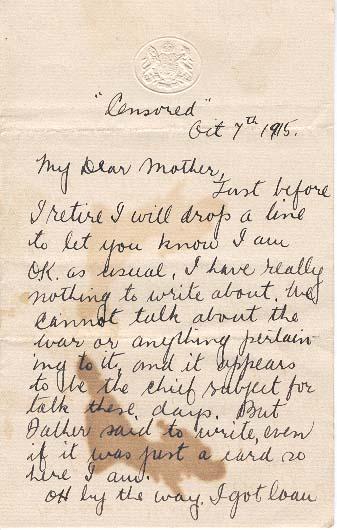 "Censored"
Oct 7th 1915.
My Dear Mother,
Just before
I retire I will drop a line
to let you know I am
OK. as usual. I have really
nothing to write about. We
cannot talk about the
war or anything pertain-
ing to it, and it appears
to be the chief subject for
talk these days. But
Father said to write, even
if it was just a card so
here I am.
OH by the way. I got loan